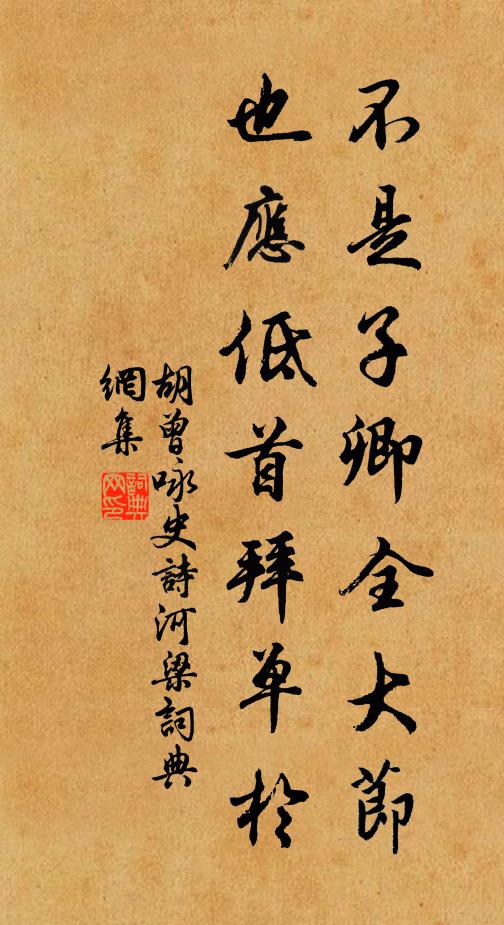 不是子卿全大節
也應低首拜單於
胡曾咏史詩河梁詞典
網集
詞典
网印